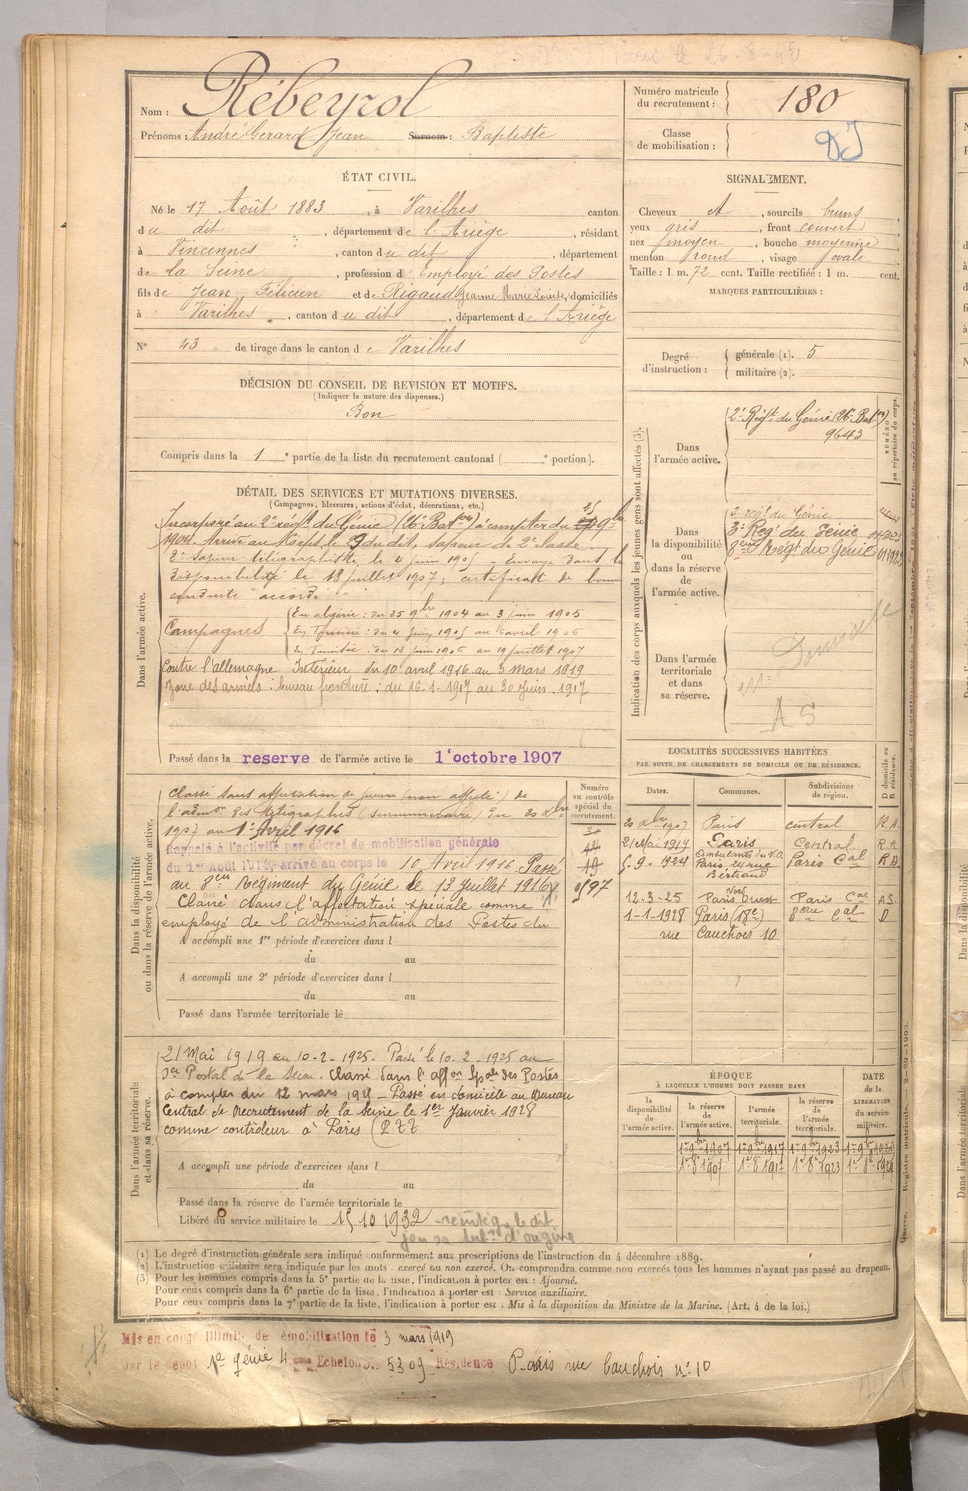 Nom : Rebeyrol
Prénoms : André Gerard Jean Surnom : Baptiste
Numéro matricule du recrutement : 180
Classe de mobilisation :
ÉTAT CIVIL.
Né le 17 Août 1883, à Varilhes canton
du dit, département de l'Ariège, résidant
à Vincennes, canton du dit, département
de la Seine, profession d'Employé des Postes
fils de Jean Félicien et de Rigaud Jeanne Marie Louise, domiciliés
à Varilhes, canton du dit, département de l'Ariège
N° 43 de tirage dans le canton de Varilhes
SIGNALEMENT.
Cheveux , sourcils bruns
yeux gris, front couvert
nez moyen, bouche moyenne
menton rond, visage ovale
Taille : 1 m. 72 cent. Taille rectifiée : 1 m. cent.
MARQUES PARTICULIÈRES :
Degré d'instruction : générale (1). 5
militaire (2).
DÉCISION DU CONSEIL DE REVISION ET MOTIFS.
(Indiquer la nature des dispenses.)
Bon
Compris dans la 1e partie de la liste du recrutement cantonal ( e portion).
DÉTAIL DES SERVICES ET MUTATIONS DIVERSES.
(Campagnes, blessures, actions d'éclat, décorations, etc.)
Dans l'armée active.
Incorporé au 2e régt du Génie (26e Baton) à compter du 9bre
1904. Arrivé au Corps le dudit, sapeur de 2e classe
Sapeur télégraphiste le 4 juin 1905 - Envoyé dans la
disponibilité le 18 juillet 1907; certificat de bonne
conduite "accordé"
Campagnes
En Algérie : du 25 9bre 1904 au 3 juin 1905
En Tunisie : du 4 juin 1905 au avril 1906
En Tunisie : du 13 juin 1906 au 19 juillet 1907
Contre l'allemagne Intérieur du 10 avril 1916 au 3 mars 1919
Zone des armées : bureau frontière : du 16.1.1917 au 30 juin 1917
Passé dans la reserve de l'armée active le 1er octobre 1907
Indication des corps auxquels les jeunes gens sont affectés (3).
NUMÉRO au répertoire du corps.
Dans l'armée active.
2e Régt du Génie (26e Baton)
9643
Dans la disponibilité ou dans la réserve de l'armée active.
2e régt du Génie
3e Regt du Génie
8eme Regt du Génie
Dans l'armée territoriale et dans sa réserve.
A S
Dans la disponibilité ou dans la réserve de l'armée active.
Classé sans affectation de guerre (non affecté) de
l'admon des télégraphes du 20 Xbre
1907 au 1er Avril 1916
Rappelé à l'activité par décret de mobilisation générale
du 1er Août 1914, arrivé au corps le 10 Avril 1916. Passé
au 8eme Régiment du Génie le 13 juillet 1916
Classé dans l'affectation spéciale comme
employé de l'administration des Postes du
A accompli une 1re période d'exercices dans l
du au
A accompli une 2e période d'exercices dans l
du au
Passé dans l'armée territoriale le
Numéro au contrôle spécial du recrutement.
LOCALITÉS SUCCESSIVES HABITÉES
PAR SUITE DE CHANGEMENTS DE DOMICILE OU DE RÉSIDENCE.
Dates. Communes. Subdivisions de région. D domicile ou R résidence.
20 Xbre 1907 Paris central R.A
Paris Central R A
5-9-1924 Ambulants du S.O. Paris 24 rue Bertrand Paris Cal R A
12.3-25 Paris Nord Ouest Paris Cal A.S
1-1-1928 Paris (18e) Cal D
rue Cauchois 10
Dans l'armée territoriale et dans sa réserve.
21 Mai 1919 au 10-2-1925. Passé le 10.2.1925 au
Postal de la Seine. Classé dans l'affon Spale des Postes
à compter du 12 mars - Passé en domicile au Bureau
Central de Recrutement de la Seine le 1er Janvier 1928
comme contrôleur à Paris
A accompli une période d'exercices dans l
du au
Passé dans la réserve de l'armée territoriale le
Libéré du service militaire le 15 10 1932
ÉPOQUE
À LAQUELLE L'HOMME DOIT PASSER DANS
la disponibilité de l'armée active. la réserve de l'armée active. l'armée territoriale. la réserve de l'armée territoriale. DATE de la LIBÉRATION du service militaire.
1er 9bre 1907 1er 9bre 1917 1er 9bre 1923
1er 8bre 1907 1er 8bre 1917 1er 8bre 1923
(1) Le degré d'instruction générale sera indiqué conformément aux prescriptions de l'instruction du 4 décembre 1889.
(2) L'instruction militaire sera indiquée par les mots : exercé ou non exercé. On comprendra comme non exercés tous les hommes n'ayant pas passé au drapeau.
(3) Pour les hommes compris dans la 5e partie de la liste, l'indication à porter est : Ajourné.
Pour ceux compris dans la 6e partie de la liste, l'indication à porter est : Service auxiliaire.
Pour ceux compris dans la 7e partie de la liste, l'indication à porter est : Mis à la disposition du Ministre de la Marine. (Art. 4 de la loi.)
Mis en congé illimité de démobilisation le 3 mars 1919
par le dépôt 1er génie 4eme Echelon No 5309 Résidence Paris rue Cauchois n° 10